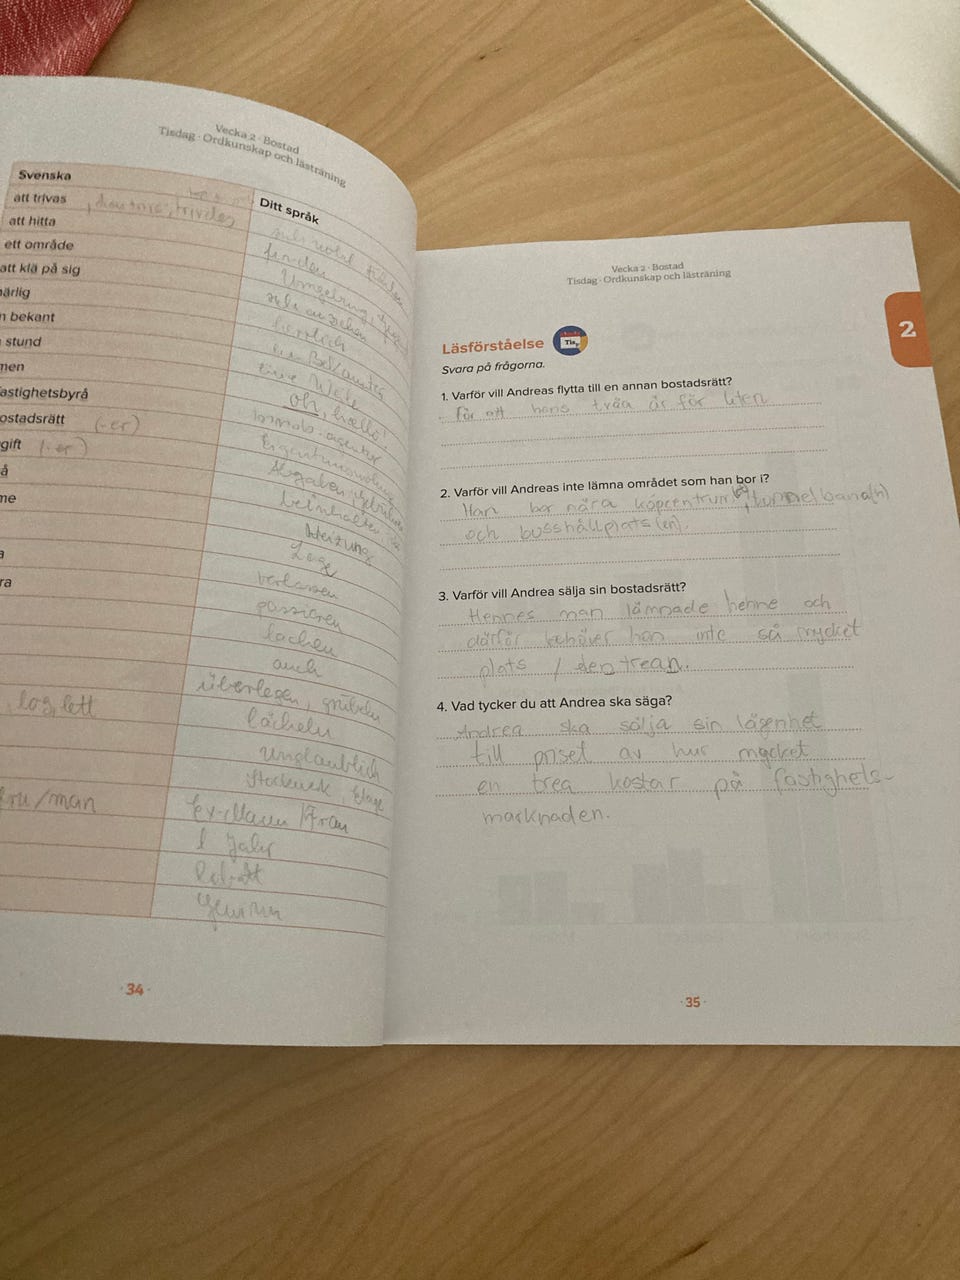 Vecka 2 · Bostad
Tisdag · Ordkunskap och lästräning
Svenska
Ditt språk
att trivas , trivdes
att hitta finden
ett område Umgebung,
att klä på sig anziehen
ärlig herrlich
n bekant
stund eine Weile
men oh, hallo!
astighetsbyrå
ostadsrätt (-er) Eigentumswohnung
gift (-er) Abgaben,
å beinhalten
me Heizung
Lage
a verlassen
ra passieren
lachen
auch
überlegen, grübeln
, log, lett lächeln
unglaublich
Stockwerk, Etage
fru/man Ex-Mann/Frau
1 Jahr
Rabatt
Gewinn
· 34 ·
Vecka 2 · Bostad
Tisdag · Ordkunskap och lästräning
2
Läsförståelse
Tis.
Svara på frågorna.
1. Varför vill Andreas flytta till en annan bostadsrätt?
För att hans tvåa är för liten
2. Varför vill Andreas inte lämna området som han bor i?
Han bor nära köpcentrum , tunnelbana(n)
och busshållplats(en).
3. Varför vill Andrea sälja sin bostadsrätt?
Hennes man lämnade henne och
därför behöver hon inte så mycket
plats / den trean.
4. Vad tycker du att Andrea ska säga?
Andrea ska sälja sin lägenhet
till priset av hur mycket
en trea kostar på fastighets-
marknaden.
· 35 ·